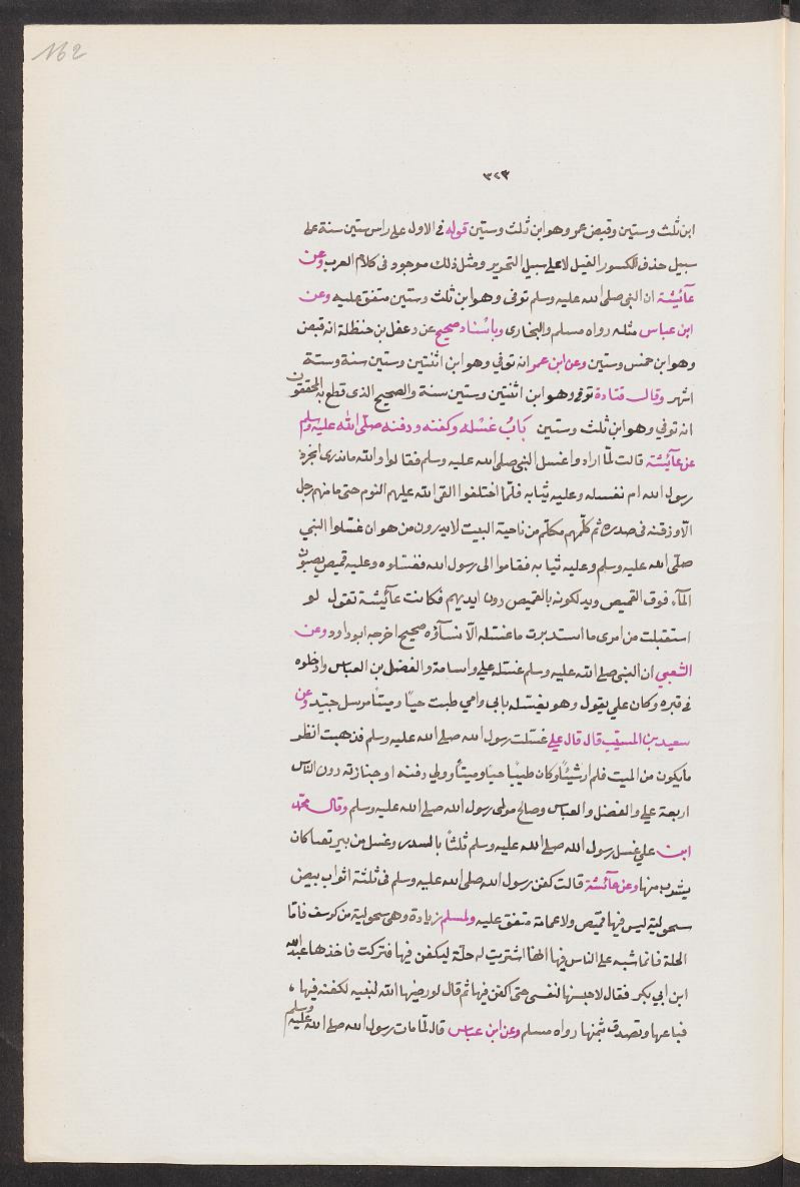 162
٣٢٣
ابن ثلث وستين وقبض عمر وهو ابن ثلث وستين قوله فى الاول على راس ستين سنة على
سبيل حذف الكسور القيل لا على سبيل التحرير ومثل ذلك موجود فى كلام العرب وعن
عآئيشة ان النبى صلى الله عليه وسلم توفى وهو ابن ثلث وستين متفق عليه وعن
ابن عباس مثله رواه مسلم والبخارى وباسناد صحيح عن دعفل بن حنظلة انه قبض
وهو ابن خمس وستين وعن ابن عمر انه توفي وهو ابن اثنتين وستين سنة وستة
اشهر وقال قتادة توفى وهو ابن اثنتين وستين سنة والصحيح الذى قطع به المحققون
انه توفي وهو ابن ثلث وستين باب غسله وكفنه ودفنه صلّى الله عليه وسلم
عن عآئيشة قالت لمّا ارادوا غسل النبى صلى الله عليه وسلم فقالوا والله ما ندرى انجرد
رسول الله ام نغسله وعليه ثيابه فلمّا اختلفوا القى الله عليهم النوم حتى ما منهم رجل
الّا وذقنه فى صدره ثم كلّمهم مكلّم من ناحية البيت لا يدرون من هو ان غسّلوا النبي
صلّى الله عليه وسلم وعليه ثيابه فقاموا الى رسول الله فغسلوه وعليه قميص يصبون
المآء فوق القميص ويدلكونه بالقميص دون ايديهم فكانت عآئيشة تقول لو
استقبلت من امرى ما استدبرت ما غسّله الّا نسآؤه صحيح اخرجه ابو داود وعن
الشعبي ان النبى صلى الله عليه وسلم غسّله علي واسامة والفضل بن العباس وادخلوه
فى قبره وكان علي يقول وهو يغسّله بابى وامي طبت حيّا وميتًا مرسل جيّد وعن
سعيد بن المسيّب قال قال علي غسّلت رسول الله صلى الله عليه وسلم فذهبت انظر
ما يكون من الميت فلم ار شيئًا وكان طيّبًا حيا وميتًا وولي دفنه او جنازته دون النّاس
اربعة علي والفضل والعباس وصالح مولى رسول الله صلى الله عليه وسلم وقال محمّد
ابن علي غسل رسول الله صلى الله عليه وسلم ثلثًا بالسدر وغسل من بير كان
يشرب منها وعن عآئشة قالت كفن رسول الله صلى الله عليه وسلم فى ثلثة اثواب بيض
سحولية ليس فيها قميص ولا عمامة متفق عليه ولمسلم زيادة وهى سحولية من كرسف فامّا
الحلة فانما شبه على الناس فيها انها اشتريت له حلّة ليكفن فيها فتركت فاخذها عبد الله
ابن ابي بكر فقال لاحبسنها لنفسى حتى اكفن فيها ثم قال لو رضيها الله لنبيه لكفنه فيها
فباعها وتصدق بثمنها رواه مسلم وعن ابن عباس قال لمّا مات رسول الله صلى الله عليه وسلم